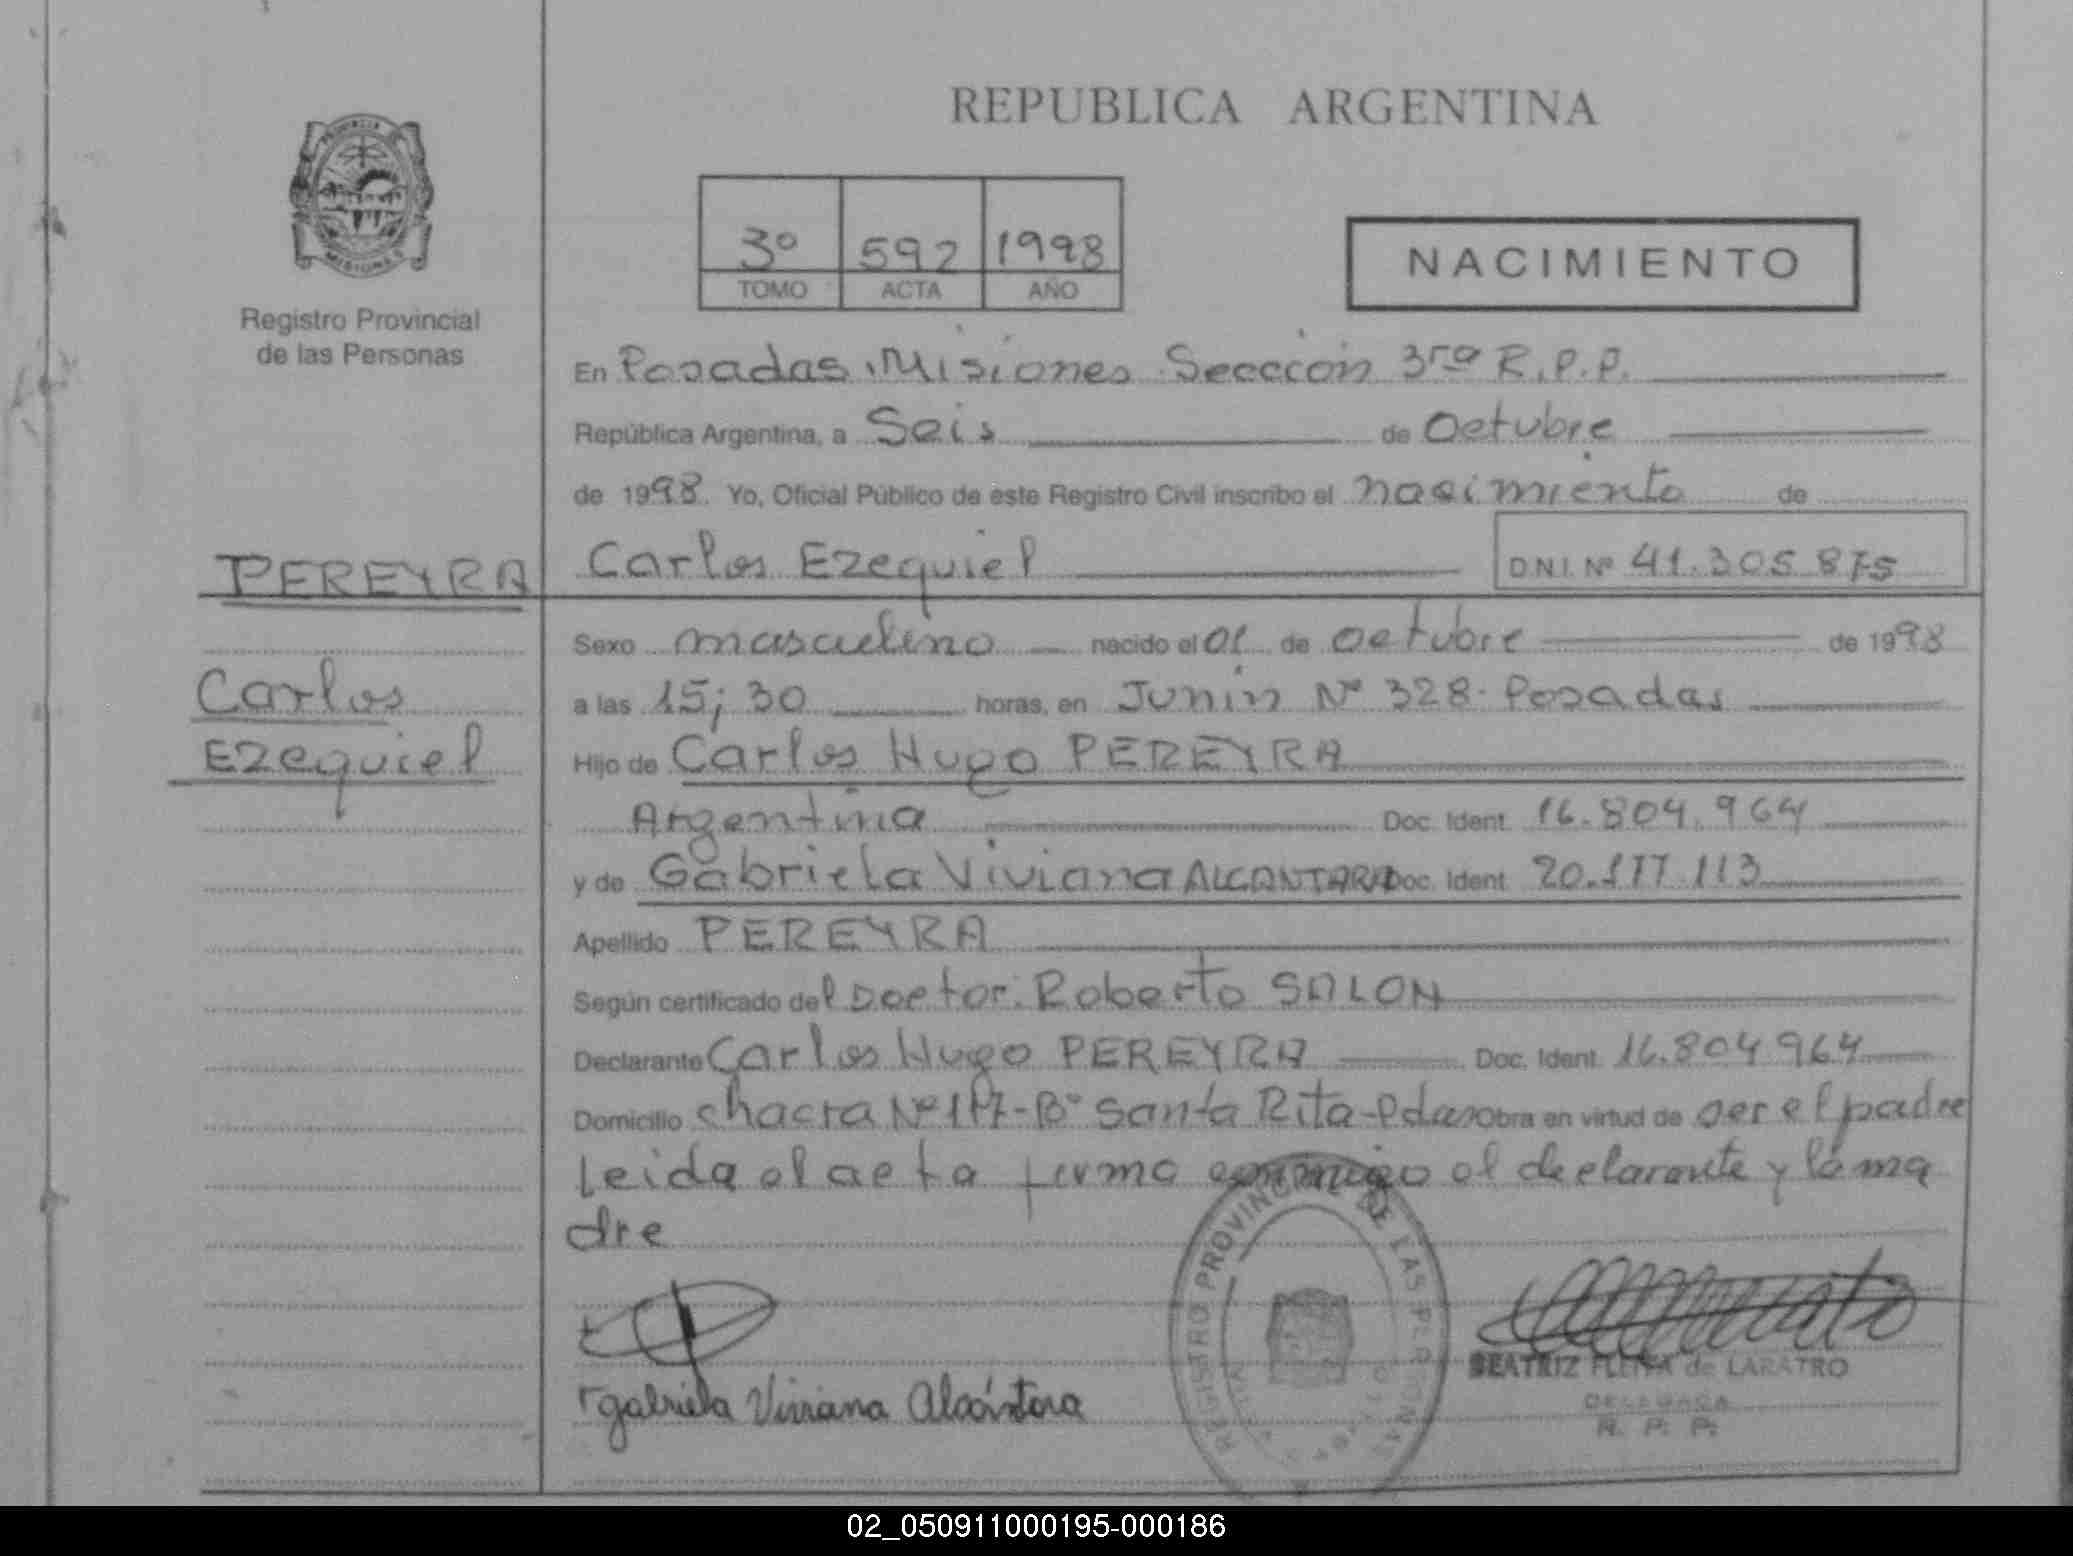 REPUBLICA ARGENTINA
PROVINCIA
MISIONES
Registro Provincial
de las Personas
3º 592 1998
TOMO ACTA AÑO
NACIMIENTO
En Posadas Misiones Sección 3ra R.P.P.
República Argentina, a Seis de Octubre
de 1998 Yo, Oficial Público de este Registro Civil inscribo el nacimiento de
PEREYRA
Carlos Ezequiel D.N.I. Nº 41.305.875
Sexo masculino nacido el 01 de octubre de 1998
Carlos
a las 15;30 horas, en Junin Nº 328. Posadas
Ezequiel
Hijo de Carlos Hugo PEREYRA
Argentina Doc. Ident. 16.804.964
y de Gabriela Viviana ALCANTARA Doc. Ident. 20.177.113
Apellido PEREYRA
Según certificado del Doctor: Roberto SALON
Declarante Carlos Hugo PEREYRA Doc. Ident. 16.804.964
Domicilio chacra Nº 117-Bº Santa Rita-Pdas obra en virtud de ser el padre
Leida el acta firma conmigo el declarante y la ma
dre
REGISTRO PROVINCIAL DE LAS PERSONAS
gabriela Viviana Alcántara
BEATRIZ de LARATRO
DELEGADA
R. P. P.
02_050911000195-000186